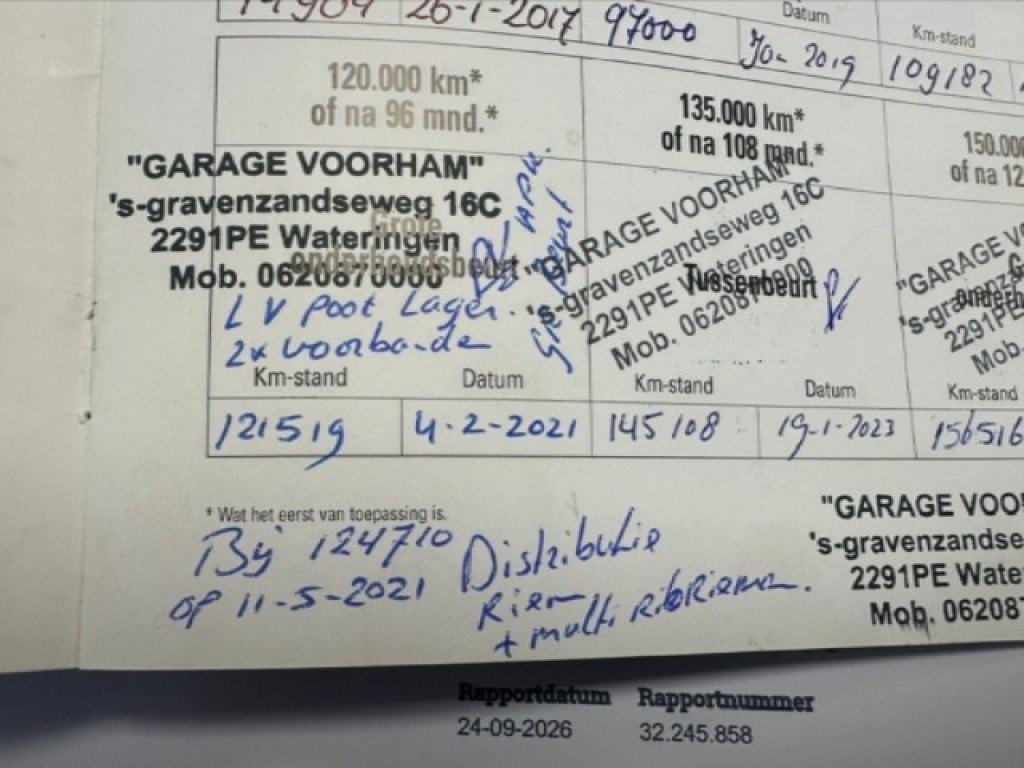 26-1-2017 97000 Datum Km-stand
Jan 2019 109182
120.000 km*
of na 96 mnd.*
135.000 km*
of na 108 mnd.*
150.000
of na 12
"GARAGE VOORHAM"
's-gravenzandseweg 16C
2291PE Wateringen
Mob. 0620870000
Grote
onderhoudsbeurt
+ APK.
Gr Beurt
LV Poot Lager.
2x voorbanden
Km-stand Datum
121519 4-2-2021
"GARAGE VOORHAM"
's-gravenzandseweg 16C
2291PE Wateringen
Mob. 0620870000
Tussenbeurt
Km-stand Datum
145108 19-1-2023
"GARAGE VO
's-gravenz
2291PE
Mob.
Km-stand
156516
* Wat het eerst van toepassing is.
Bij 124710
op 11-5-2021
Distributie
Riem
+ multi ribRiemen.
"GARAGE VOO
's-gravenzandse
2291PE Water
Mob. 06208
Rapportdatum Rapportnummer
24-09-2026 32.245.858